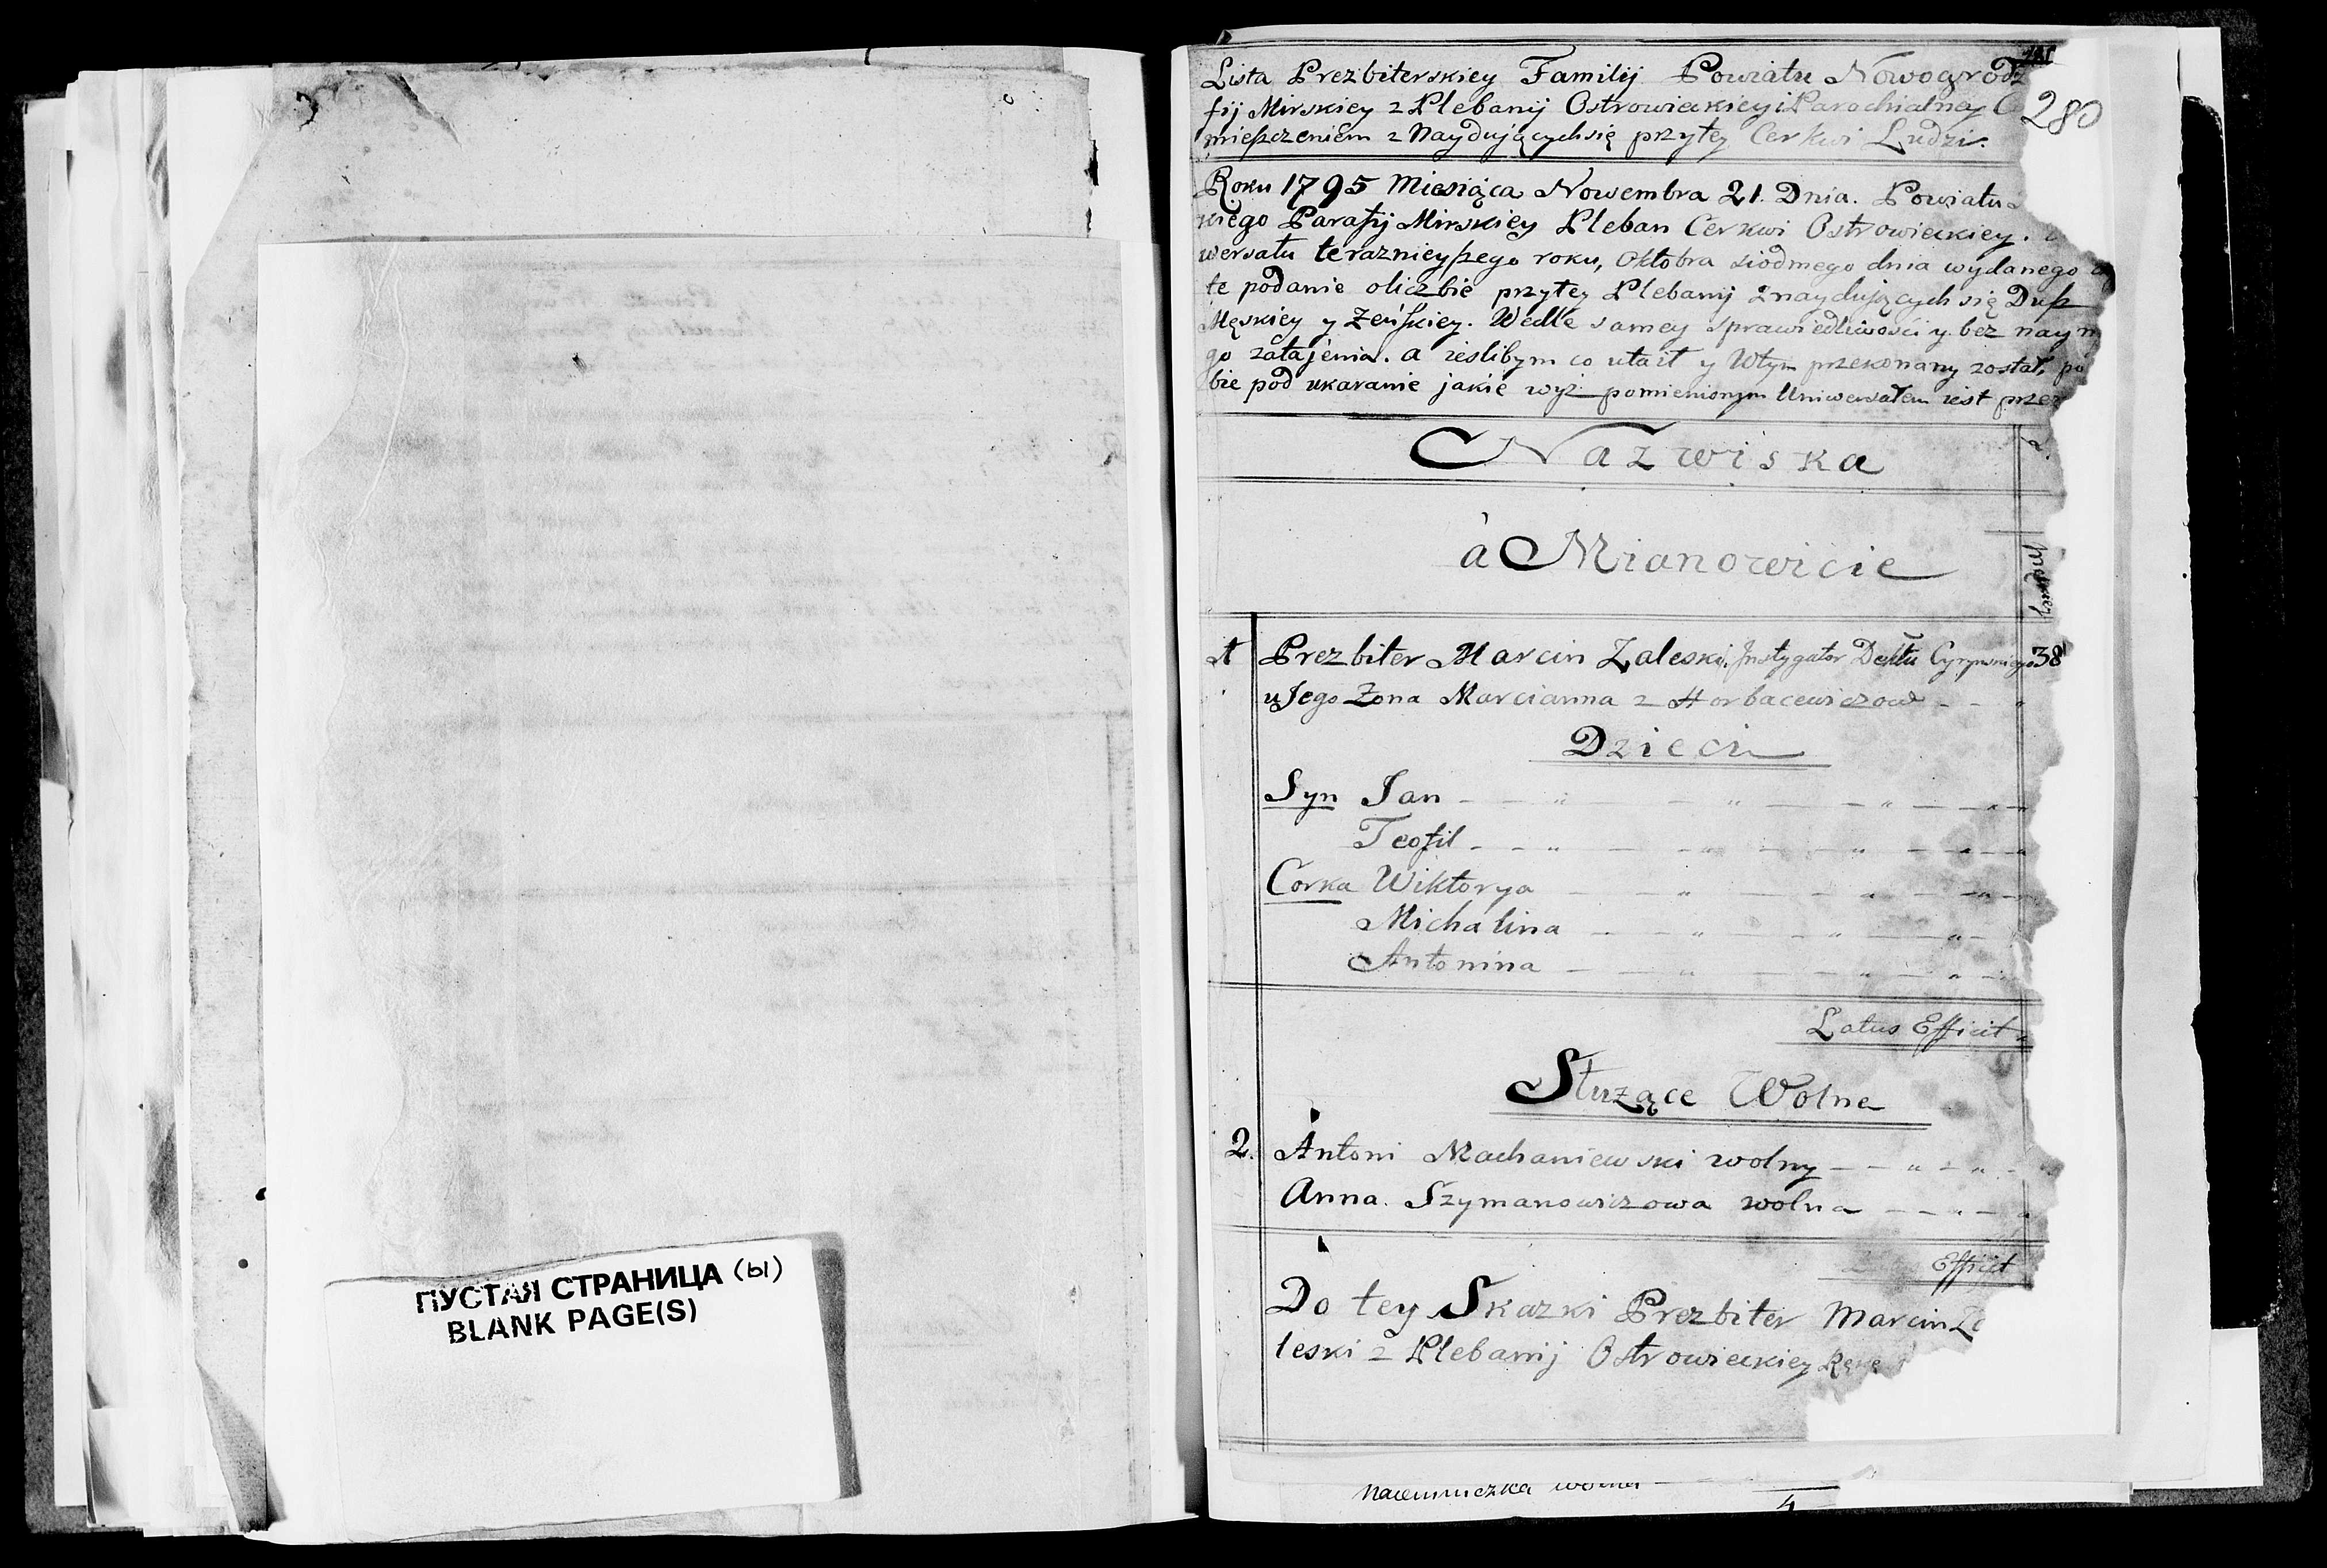 ПУСТАЯ СТРАНИЦА (Ы)
BLANK PAGE(S)
280
Lista Prezbiterskiey Familij Powiatu Nowogrodz
fij Mirskiey z Plebanij Ostrowieckiey i Parochialney
mieszczeniem z Naydującychsię przytey Cerkwi Ludzi.
Roku 1795 Miesiąca Nowembra 21. Dnia. Powiatu
kiego Parafij Mirskiey Pleban Cerkwi Ostrowieckiey.
wersału teraznieyszego roku, Oktobra siodmego dnia wydanego
te podanie oliczbie przytey Plebanij znaydujących się Dusz
Męskiey y Zeńskiey. Wedle samey sprawiedliwości y bez naym
go zatajenia. a ieslibym co utaił y Wtym przekonany został, po
bie pod ukaranie jakie wyż pomienionym Uniwersałem iest prze
Nazwiska
à Mianowicie
1 Prezbiter Marcin Zaleski, Instygator Dektu 38
u Jego Zona Marcianna z Horbacewiczow
Dzieci
Syn Jan
Teofil
Corka Wiktorya
Michalina
Antonina
Latus Efficit
Służące Wolne
2. Antoni Machaniewski wolny
Anna. Szymanowiczowa wolna
Efficit
Do tey Skazki Prezbiter Marcin Za
leski z Plebanij Ostrowieckiey Rękę
4